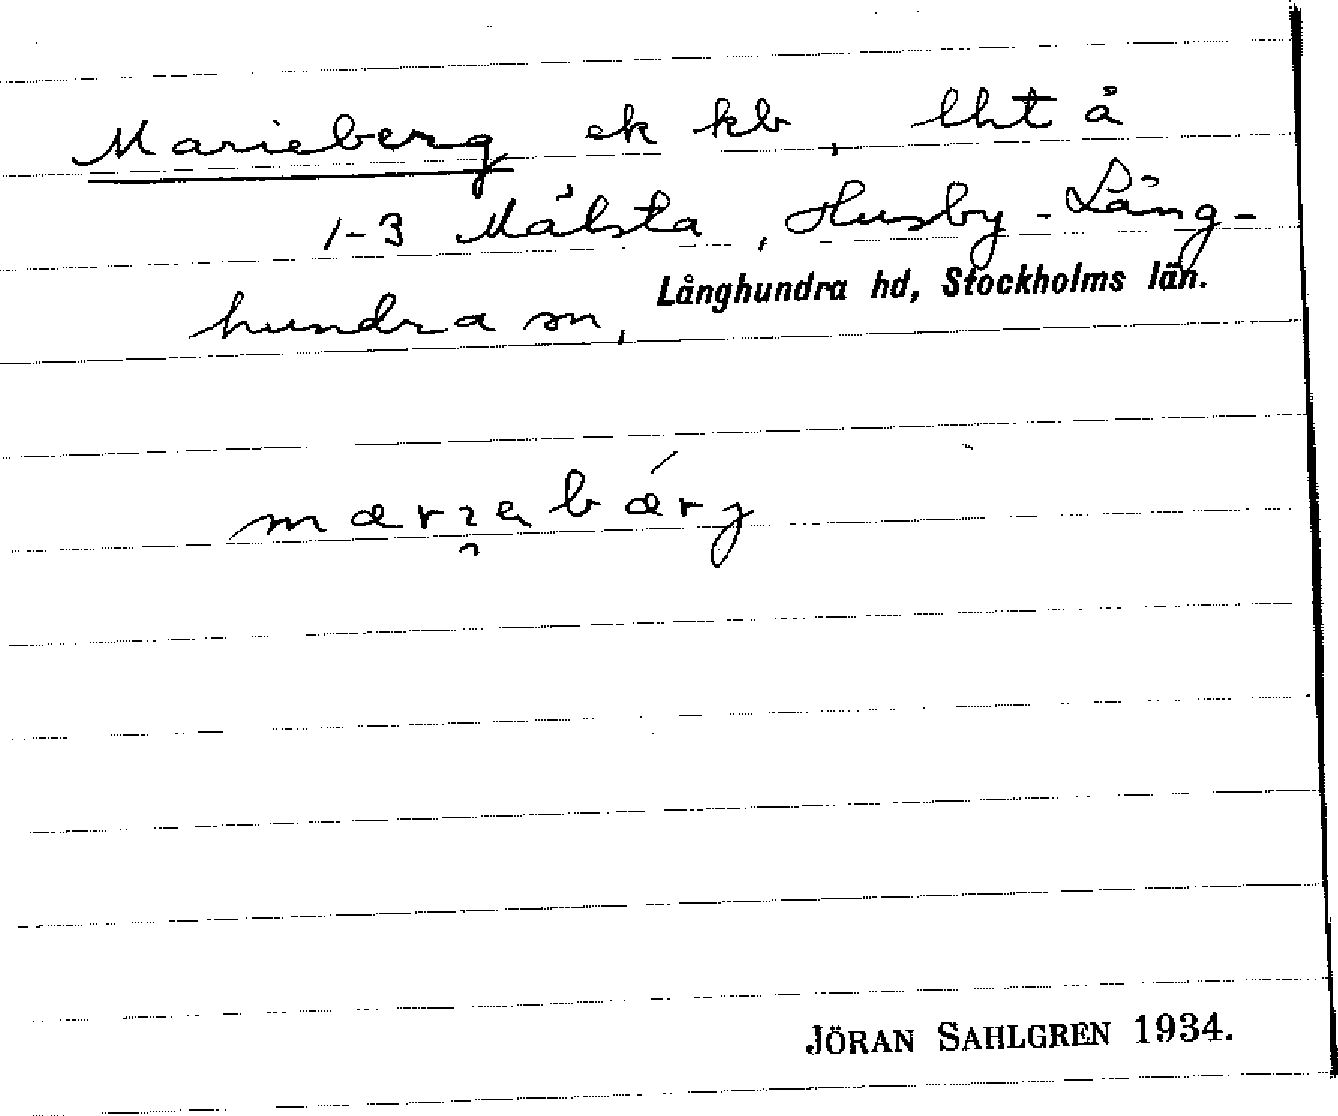 Marieberg ek kb, lht å
1-3 Målsta, Husby-Lång-
hundra sn, Långhundra hd, Stockholms län.
JÖRAN SAHLGREN 1934.